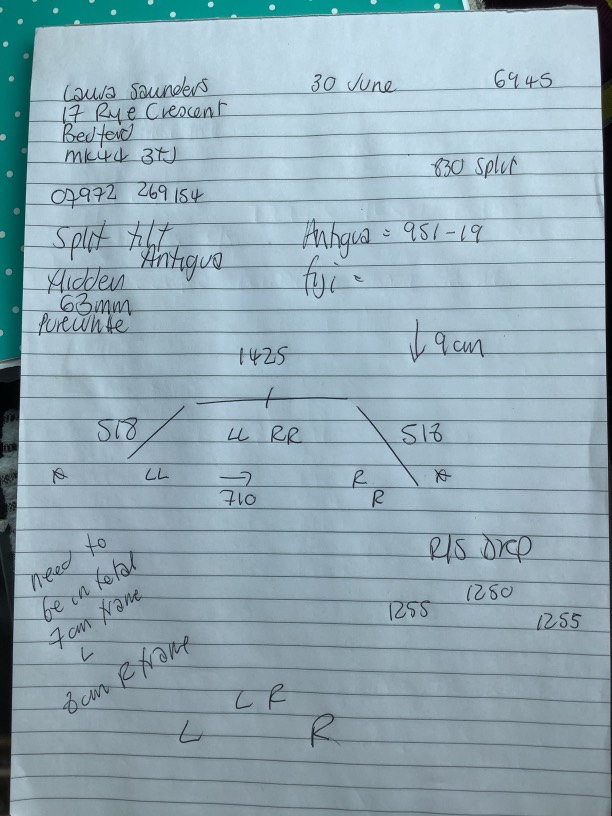 Laura Saunders 30 June 6945
17 Rye Crescent
Bedford
MK44 3TJ
830 Split
07972 269154
Split tilt Antigua = 951-19
Antigua
Hidden fiji =
63mm
Purewhite
↓ 9cm
1425
518 LL RR 518
* LL → R *
710 R
need to
be in total
7cm frame
L
8cm R frame
R/S Drop
1250
1255 1255
L R
L R